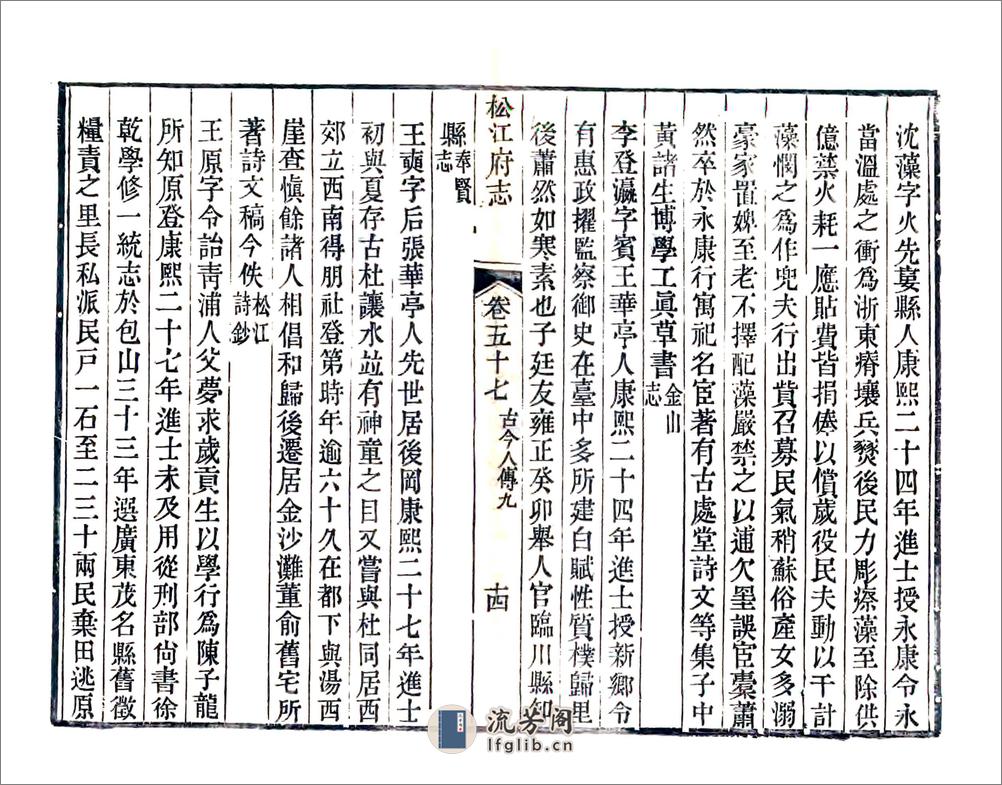 沈藻字火先婁縣人康熙二十四年進士授永康令永
當溫處之衝爲浙東瘠壤兵燹後民力彫瘵藻至除供
億禁火耗一應貼費皆捐俸以償歲役民夫動以千計
藻憫之爲作兜夫行出貲召募民氣稍蘇俗產女多溺
豪家置婢至老不擇配藻嚴禁之以逋欠罣誤宦橐蕭
然卒於永康行寓祀名宦著有古處堂詩文等集子中
黃諸生博學工眞草書金山志
李登瀛字賓王華亭人康熙二十四年進士授新鄉令
有惠政擢監察御史在臺中多所建白賦性質樸歸里
後蕭然如寒素也子廷友雍正癸卯舉人官臨川縣知
縣奉賢志
松江府志
卷五十七 古今人傳九
十四
王奭字后張華亭人先世居後岡康熙二十七年進士
初與夏存古杜讓水並有神童之目又嘗與杜同居西
郊立西南得朋社登第時年逾六十久在都下與湯西
崖查愼餘諸人相倡和歸後遷居金沙灘董俞舊宅所
著詩文稿今佚松江詩鈔
王原字令詒靑浦人父夢求歲貢生以學行爲陳子龍
所知原登康熙二十七年進士未及用從刑部尙書徐
乾學修一統志於包山三十三年選廣東茂名縣舊徵
糧責之里長私派民戸一石至二三十兩民棄田逃原
流芳阁
lfglib.cn